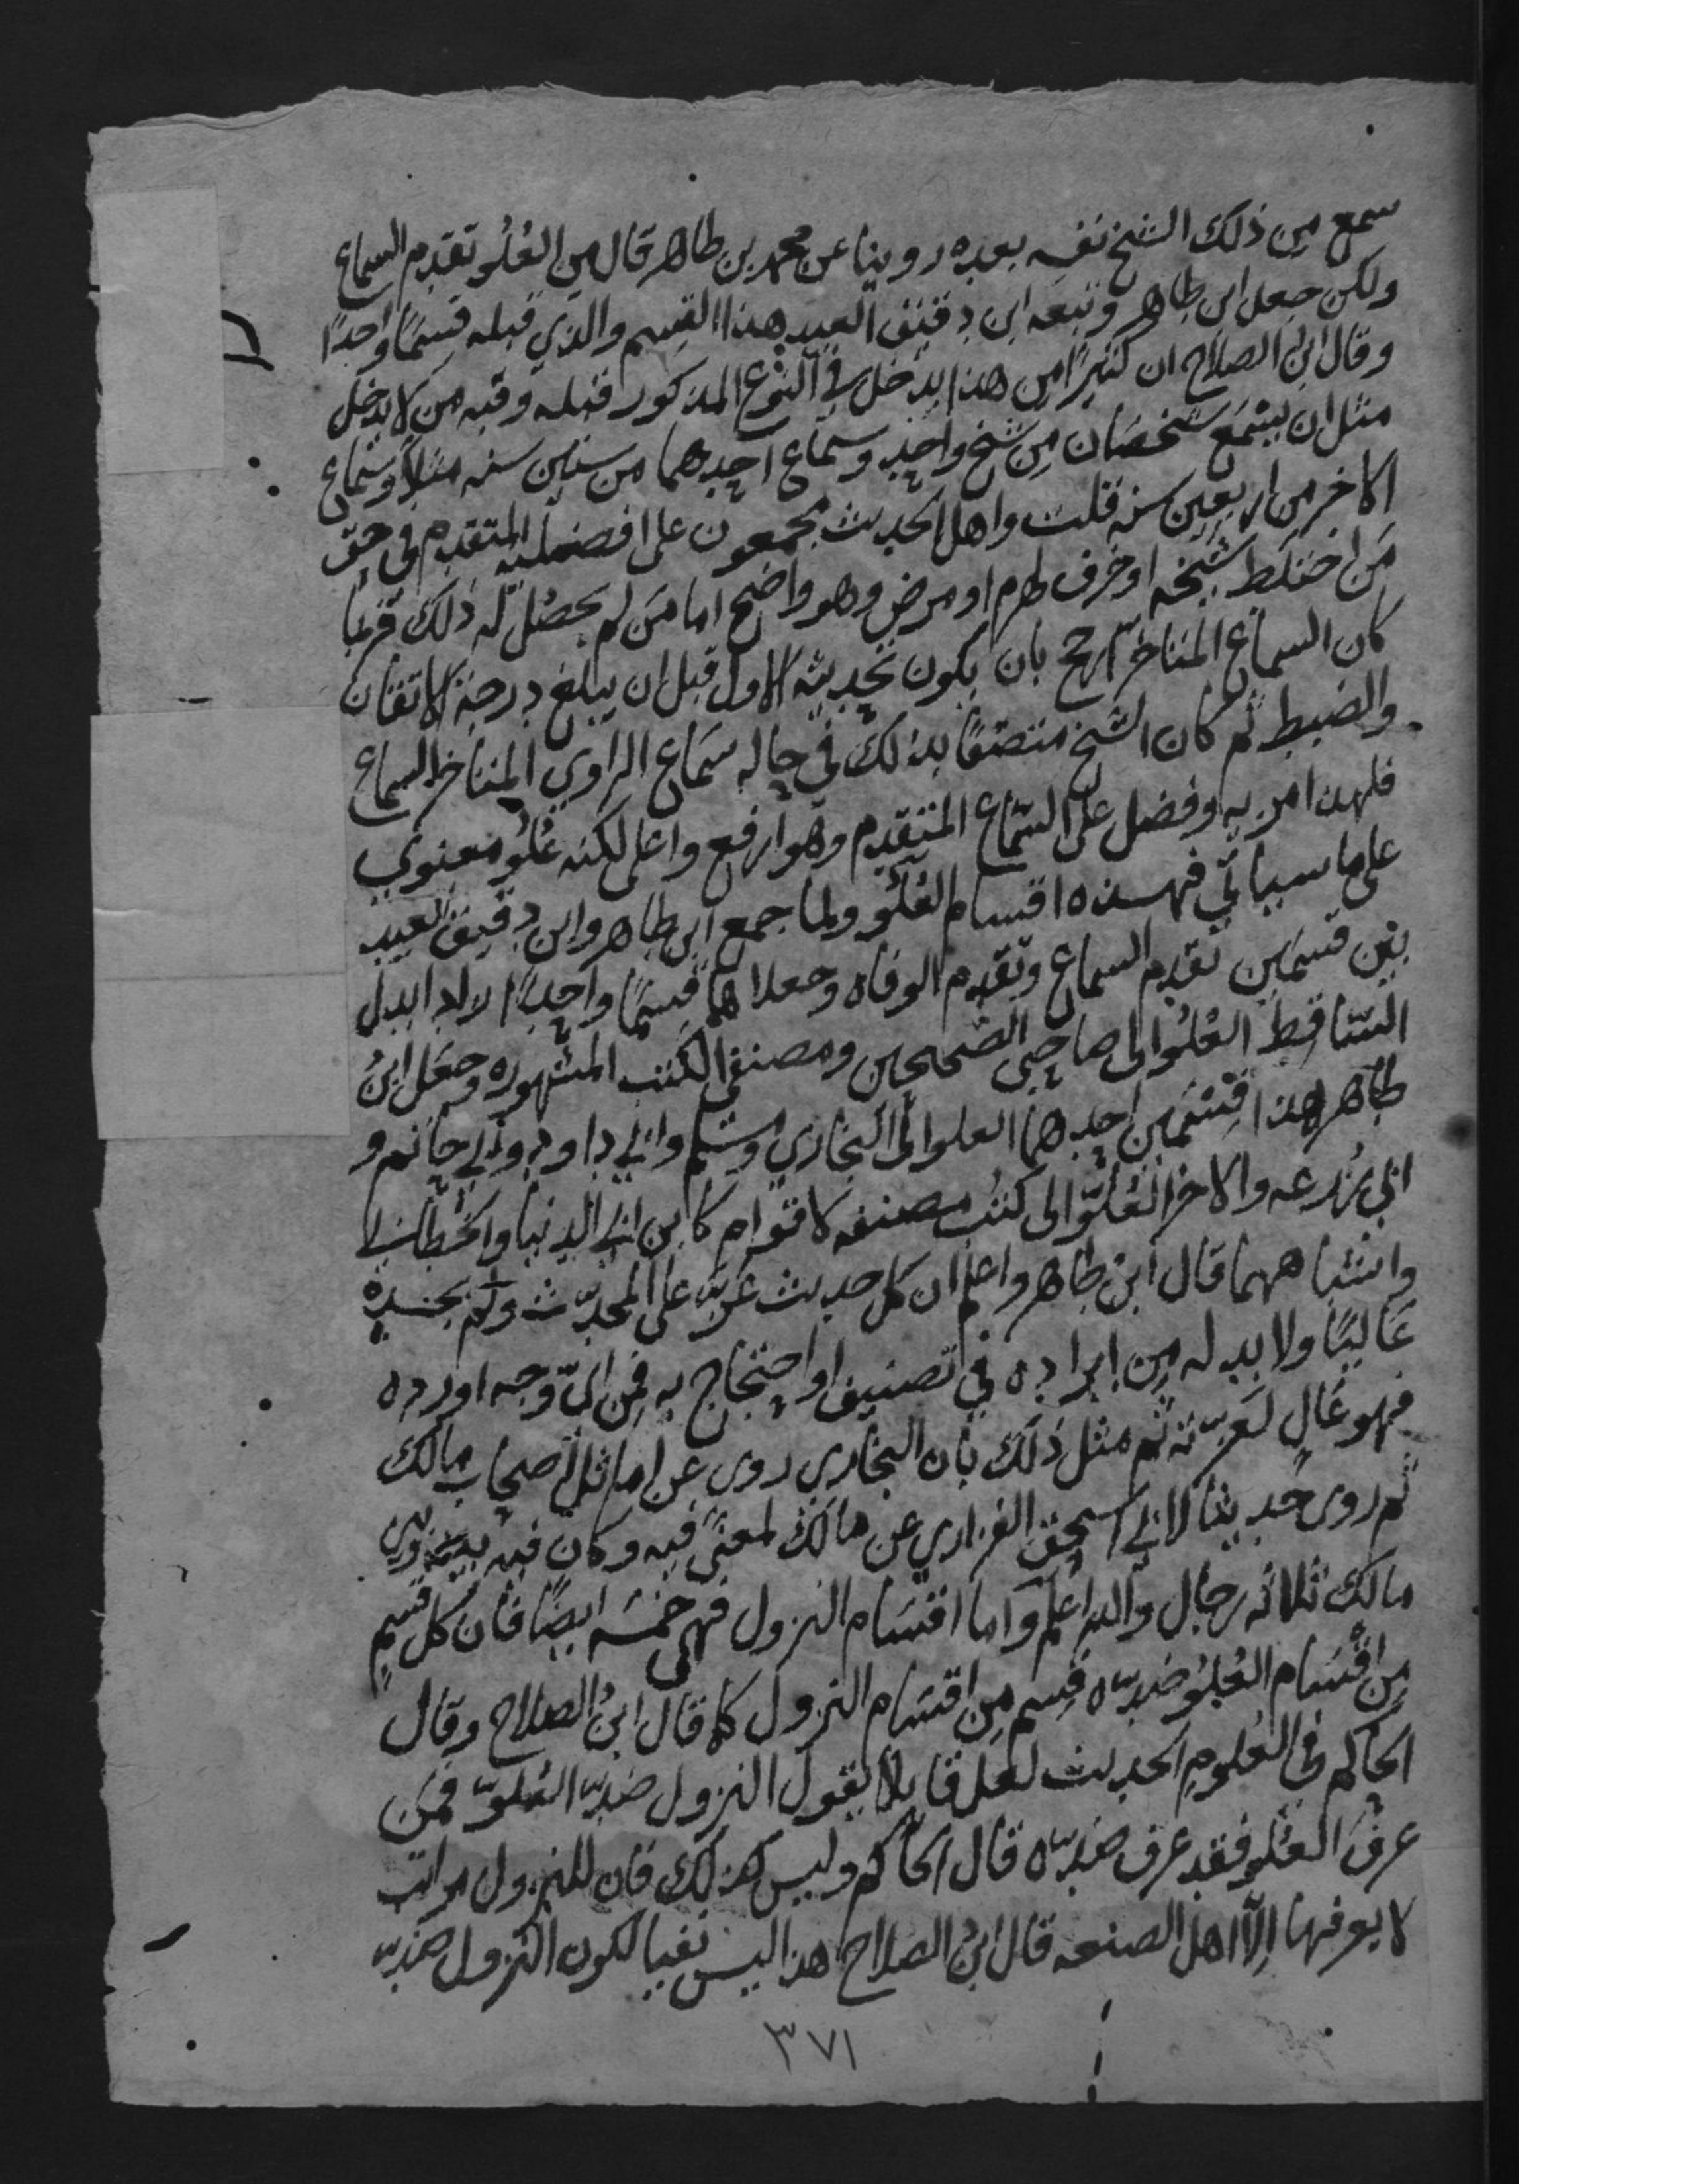 سمع من ذلك الشيخ نفسه بعده روينا عن محمد بن طاهر قال من العُلُو تقدم السماع
ولكن جعل ابن طاهر وتبعه ابن دقيق العيد هذا القسم والذي قبله قسمًا واحدًا
وقال ابن الصلاح ان كثيرًا من هذا يدخل في النوع المذكور قبله وفيه من لا يدخل
مثل ان يسمع شخصان من شيخ واحد وسماع احدهما من ستين سنه مثلاً وسماع
الاخر من اربعين سنه قلت واهل الحديث مجمعون على افضلية المتقدم في حق
من اختلط شيخه او خرف لهرم او مرض وهو واضح اما من لم يحصل له ذلك فربما
كان السماع المتاخر ارجح بان يكون تحديثه الاول قبل ان يبلغ درجة الاتقان
والضبط ثم كان الشيخ متصفًا بذلك في حاله سماع الراوي المتاخر السماع
فلهذا مزيه وفضل على السماع المتقدم وهو ارفع واعلى لكنه عُلُو معنوي
على ما سياتي فهذه اقسام العُلُو ولما جمع ابن طاهر وابن دقيق العيد
بين قسمين تقدم السماع وتقدم الوفاه وجعلاهما قسمًا واحدًا زادا بدل
الساقط العُلُو الى صاحبي الصحيحين ومصنفي الكتب المشهوره وجعل ابن
طاهر هذا قسمين احدهما العلو الى البخاري ومسلم وابي داود وابي حاتم و
ابي زرعه والاخر العُلُوّ الى كتب مصنفه لاقوام كابن ابي الدنيا والخطابي
واشباههما قال ابن طاهر واعلم ان كل حديث عزّ على المحدّث ولم يجده
عاليًا ولا بد له من ايراده في تصنيف او احتجاج به فمن ايّ وجه اورده
فهو عالٍ لعزّته ثم مثل ذلك بان البخاري روى عن اماثل اصحاب مالك
ثم روى حديثا لابي اسحق الفزاري عن مالك لمعنًى فيه وكان فيه بينه وبين
مالك ثلاثه رجال والله اعلم واما اقسام النزول فهي خمسه ايضًا فان كل قسم
من اقسام العُلُو ضدّه قسم من اقسام النزول كما قال ابن الصلاح وقال
الحاكم في العلوم الحديث لعل قايلا يقول النزول ضدّ العُلوّ فمن
عرف العُلو فقد عرف ضدّه قال الحاكم وليس كذلك فان للنزول مراتب
لا يعرفها إلّا اهل الصنعه قال ابن الصلاح هذا ليس نفيا لكون النزول ضدّ
٣٧١